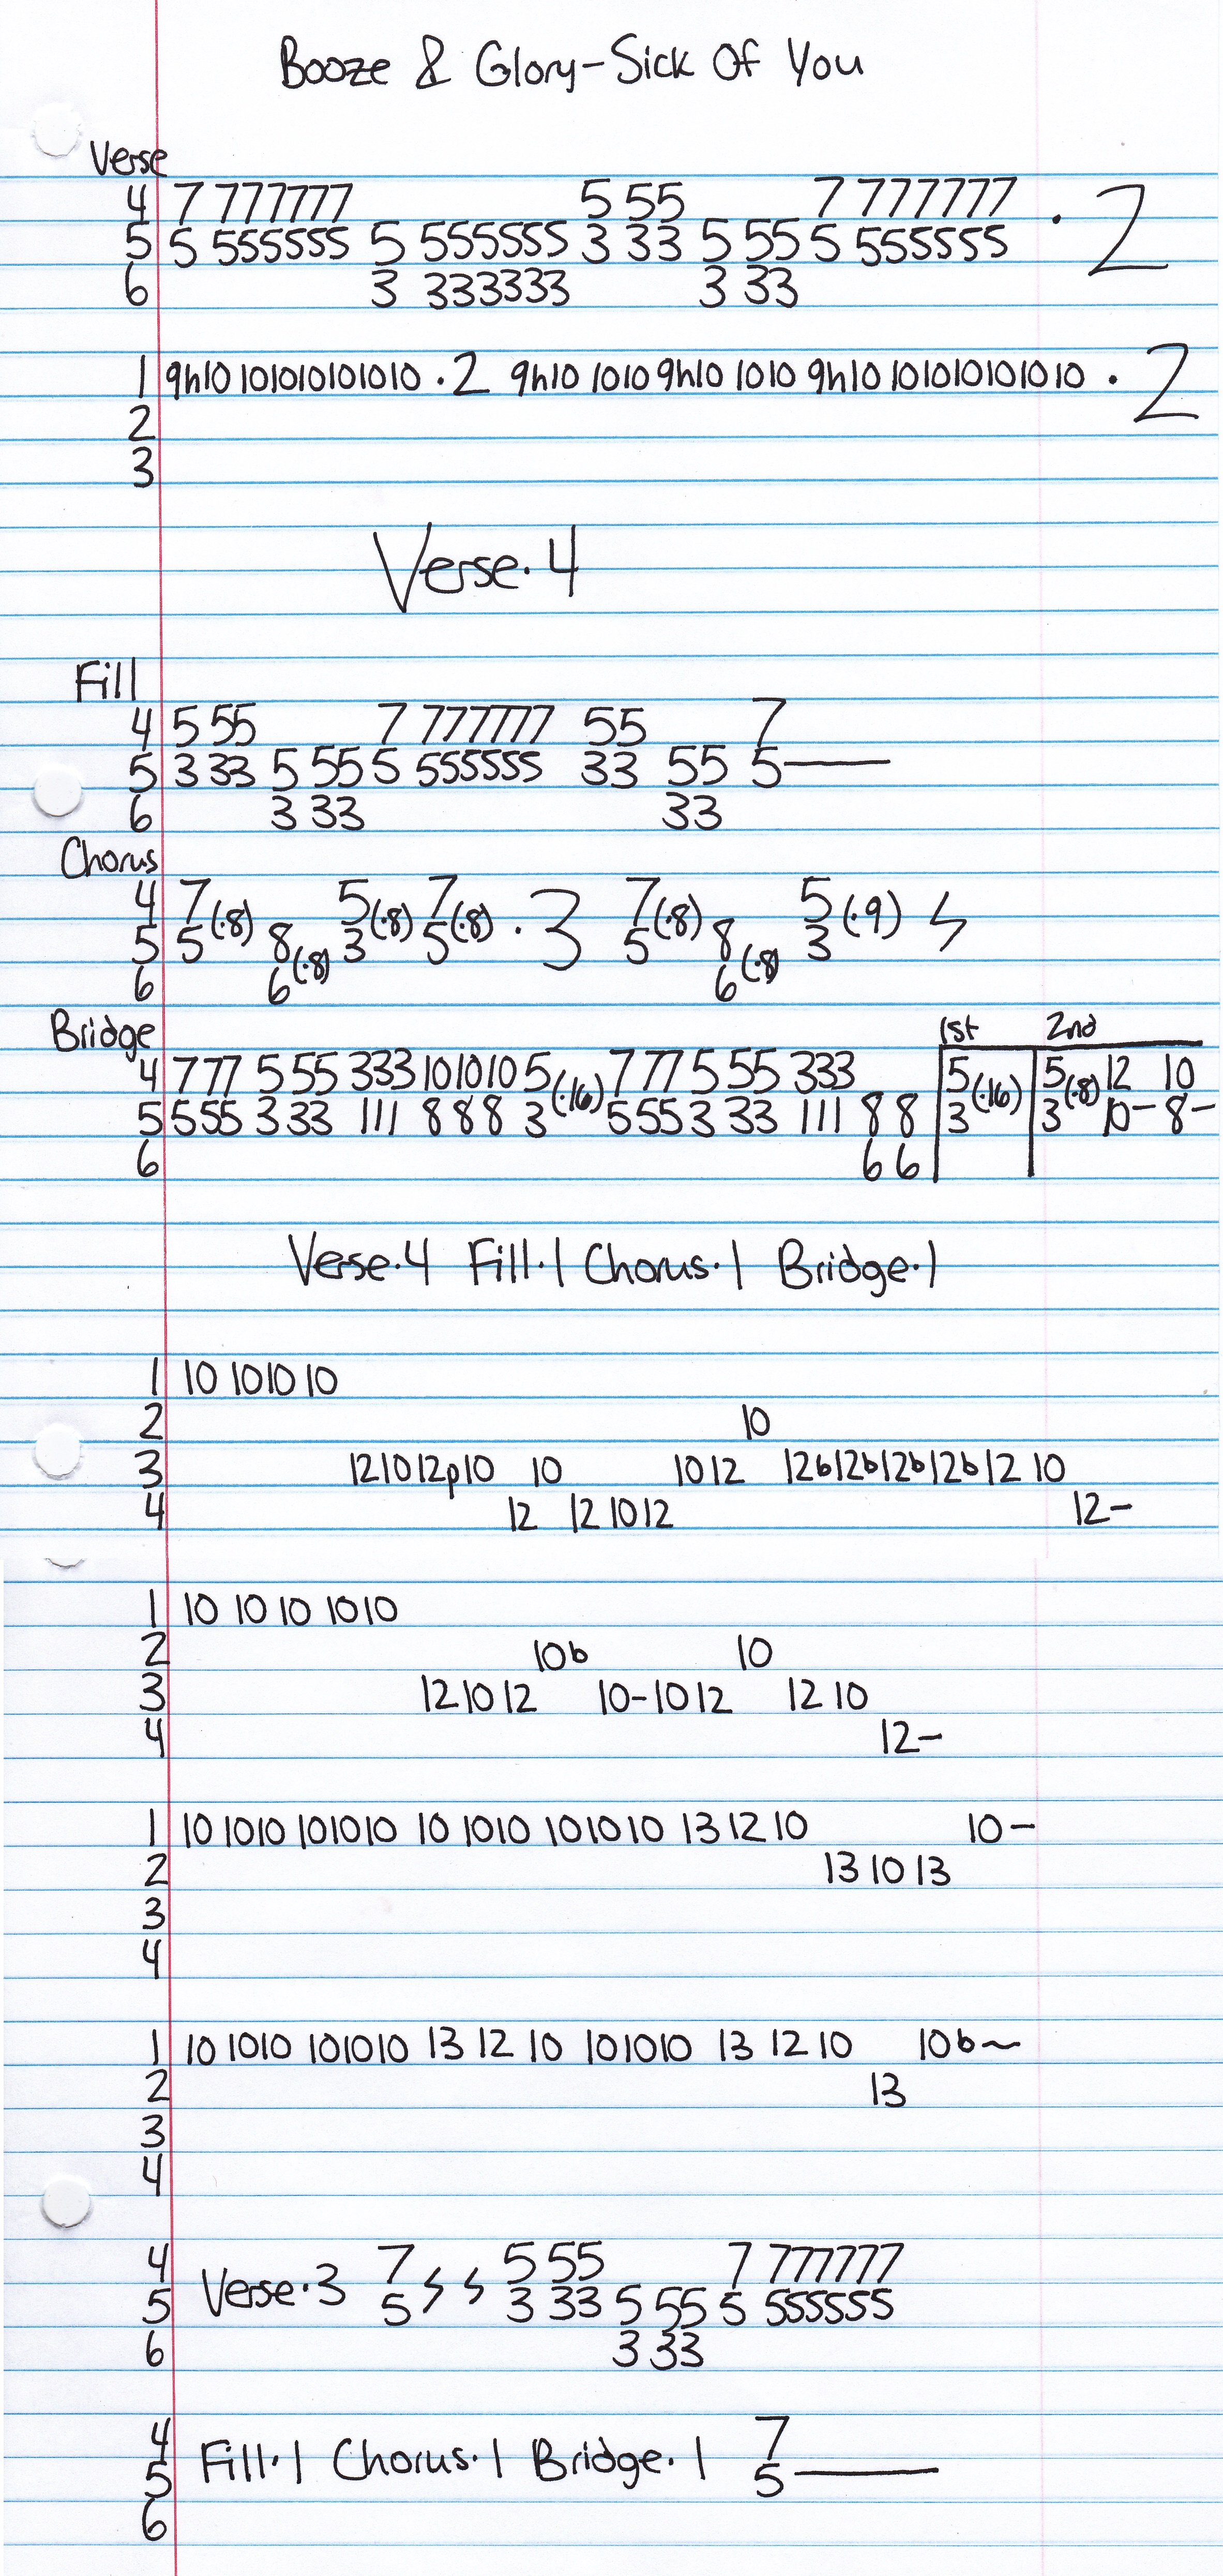 Booze & Glory-Sick Of You
Verse
4 7 777777 5 55 7 777777 · 2
5 5 555555 5 555555 3 33 5 55 5 555555
6 3 333333 3 33
1 9h10 101010101010 ·2 9h10 1010 9h10 1010 9h10 101010101010 · 2
2
3
Verse·4
Fill
4 5 55 7 777777 55 7
5 3 33 5 55 5 555555 33 55 5—
6 3 33 33
Chorus
4 7 (·8) 5 (·8) 7 (·8) · 3 7 (·8) 5 (·9) 𝄽
5 5 8 (·8) 3 5 5 8 (·8) 3
6 6 6
Bridge 1st 2nd
4 777 5 55 333 101010 5 (·16) 777 5 55 333 5 (·16) 5 (·8) 12 10
5 555 3 33 111 888 3 555 3 33 111 8 8 3 3 10- 8-
6 6 6
Verse·4 Fill·1 Chorus·1 Bridge·1
1 10 1010 10
2 10
3 12 10 12p10 10 10 12 12b12b12b12b12 10
4 12 12 10 12 12-
1 10 10 10 1010
2 10b 10
3 12 10 12 10-10 12 12 10
4 12-
1 10 1010 101010 10 1010 101010 13 12 10 10-
2 13 10 13
3
4
1 10 1010 101010 13 12 10 101010 13 12 10 10b~
2 13
3
4
4 Verse·3 7 𝄽 𝄽 5 55 7 777777
5 5 3 33 5 55 5 555555
6 3 33
4 Fill·1 Chorus·1 Bridge·1 7
5 5—
6